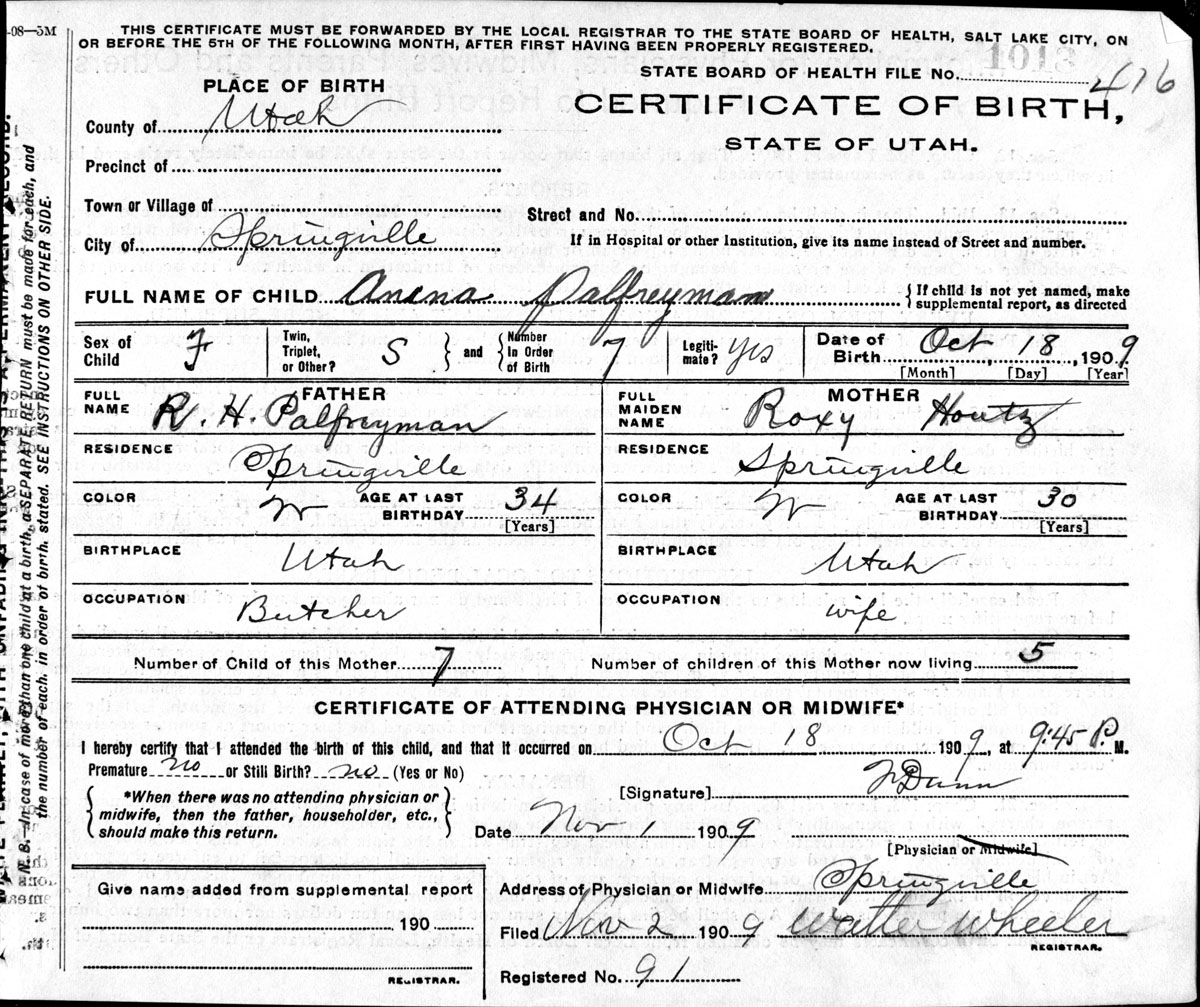 -08—5M
THIS CERTIFICATE MUST BE FORWARDED BY THE LOCAL REGISTRAR TO THE STATE BOARD OF HEALTH, SALT LAKE CITY, ON
OR BEFORE THE 5TH OF THE FOLLOWING MONTH, AFTER FIRST HAVING BEEN PROPERLY REGISTERED.
1013
STATE BOARD OF HEALTH FILE No. 416
PLACE OF BIRTH
CERTIFICATE OF BIRTH,
STATE OF UTAH.
County of Utah
Precinct of
Town or Village of
Street and No.
City of Springville
If in Hospital or other Institution, give its name instead of Street and number.
FULL NAME OF CHILD Anena Palfreyman { If child is not yet named, make
supplemental report, as directed
Sex of Child F Twin, Triplet, or Other? S and Number In Order of Birth 7 Legiti- mate? Yes Date of Birth Oct 18, 1909
[Month] [Day] [Year]
FATHER
MOTHER
FULL NAME R. H. Palfreyman
FULL MAIDEN NAME Roxy Houtz
RESIDENCE Springville
RESIDENCE Springville
COLOR W AGE AT LAST BIRTHDAY 34 [Years]
COLOR W AGE AT LAST BIRTHDAY 30 [Years]
BIRTHPLACE Utah
BIRTHPLACE Utah
OCCUPATION Butcher
OCCUPATION wife
Number of Child of this Mother 7 Number of children of this Mother now living 5
CERTIFICATE OF ATTENDING PHYSICIAN OR MIDWIFE*
I hereby certify that I attended the birth of this child, and that it occurred on Oct 18 1909, at 9:45 P. M.
Premature no or Still Birth? no (Yes or No)
[Signature] Dunn
*When there was no attending physician or
midwife, then the father, householder, etc.,
should make this return.
Date Nov 1 1909
[Physician or Midwife]
Give name added from supplemental report
190
REGISTRAR.
Address of Physician or Midwife Springville
Filed Nov 2 1909 Walter Wheeler
REGISTRAR.
Registered No. 91
N. B.—In case of more than one child at a birth, a SEPARATE RETURN must be made for each, and
the number of each, in order of birth, stated. SEE INSTRUCTIONS ON OTHER SIDE.